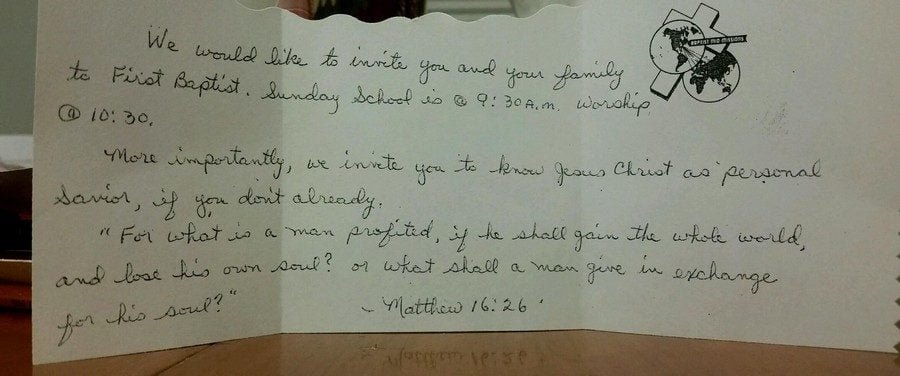 We would like to invite you and your family
to First Baptist. Sunday School is @ 9:30 A.m. Worship
@ 10:30.
More importantly, we invite you to know Jesus Christ as personal
Savior, if you don't already.
"For what is a man profited, if he shall gain the whole world,
and lose his own soul? or what shall a man give in exchange
for his soul?"
- Matthew 16:26
BAPTIST MID MISSIONS